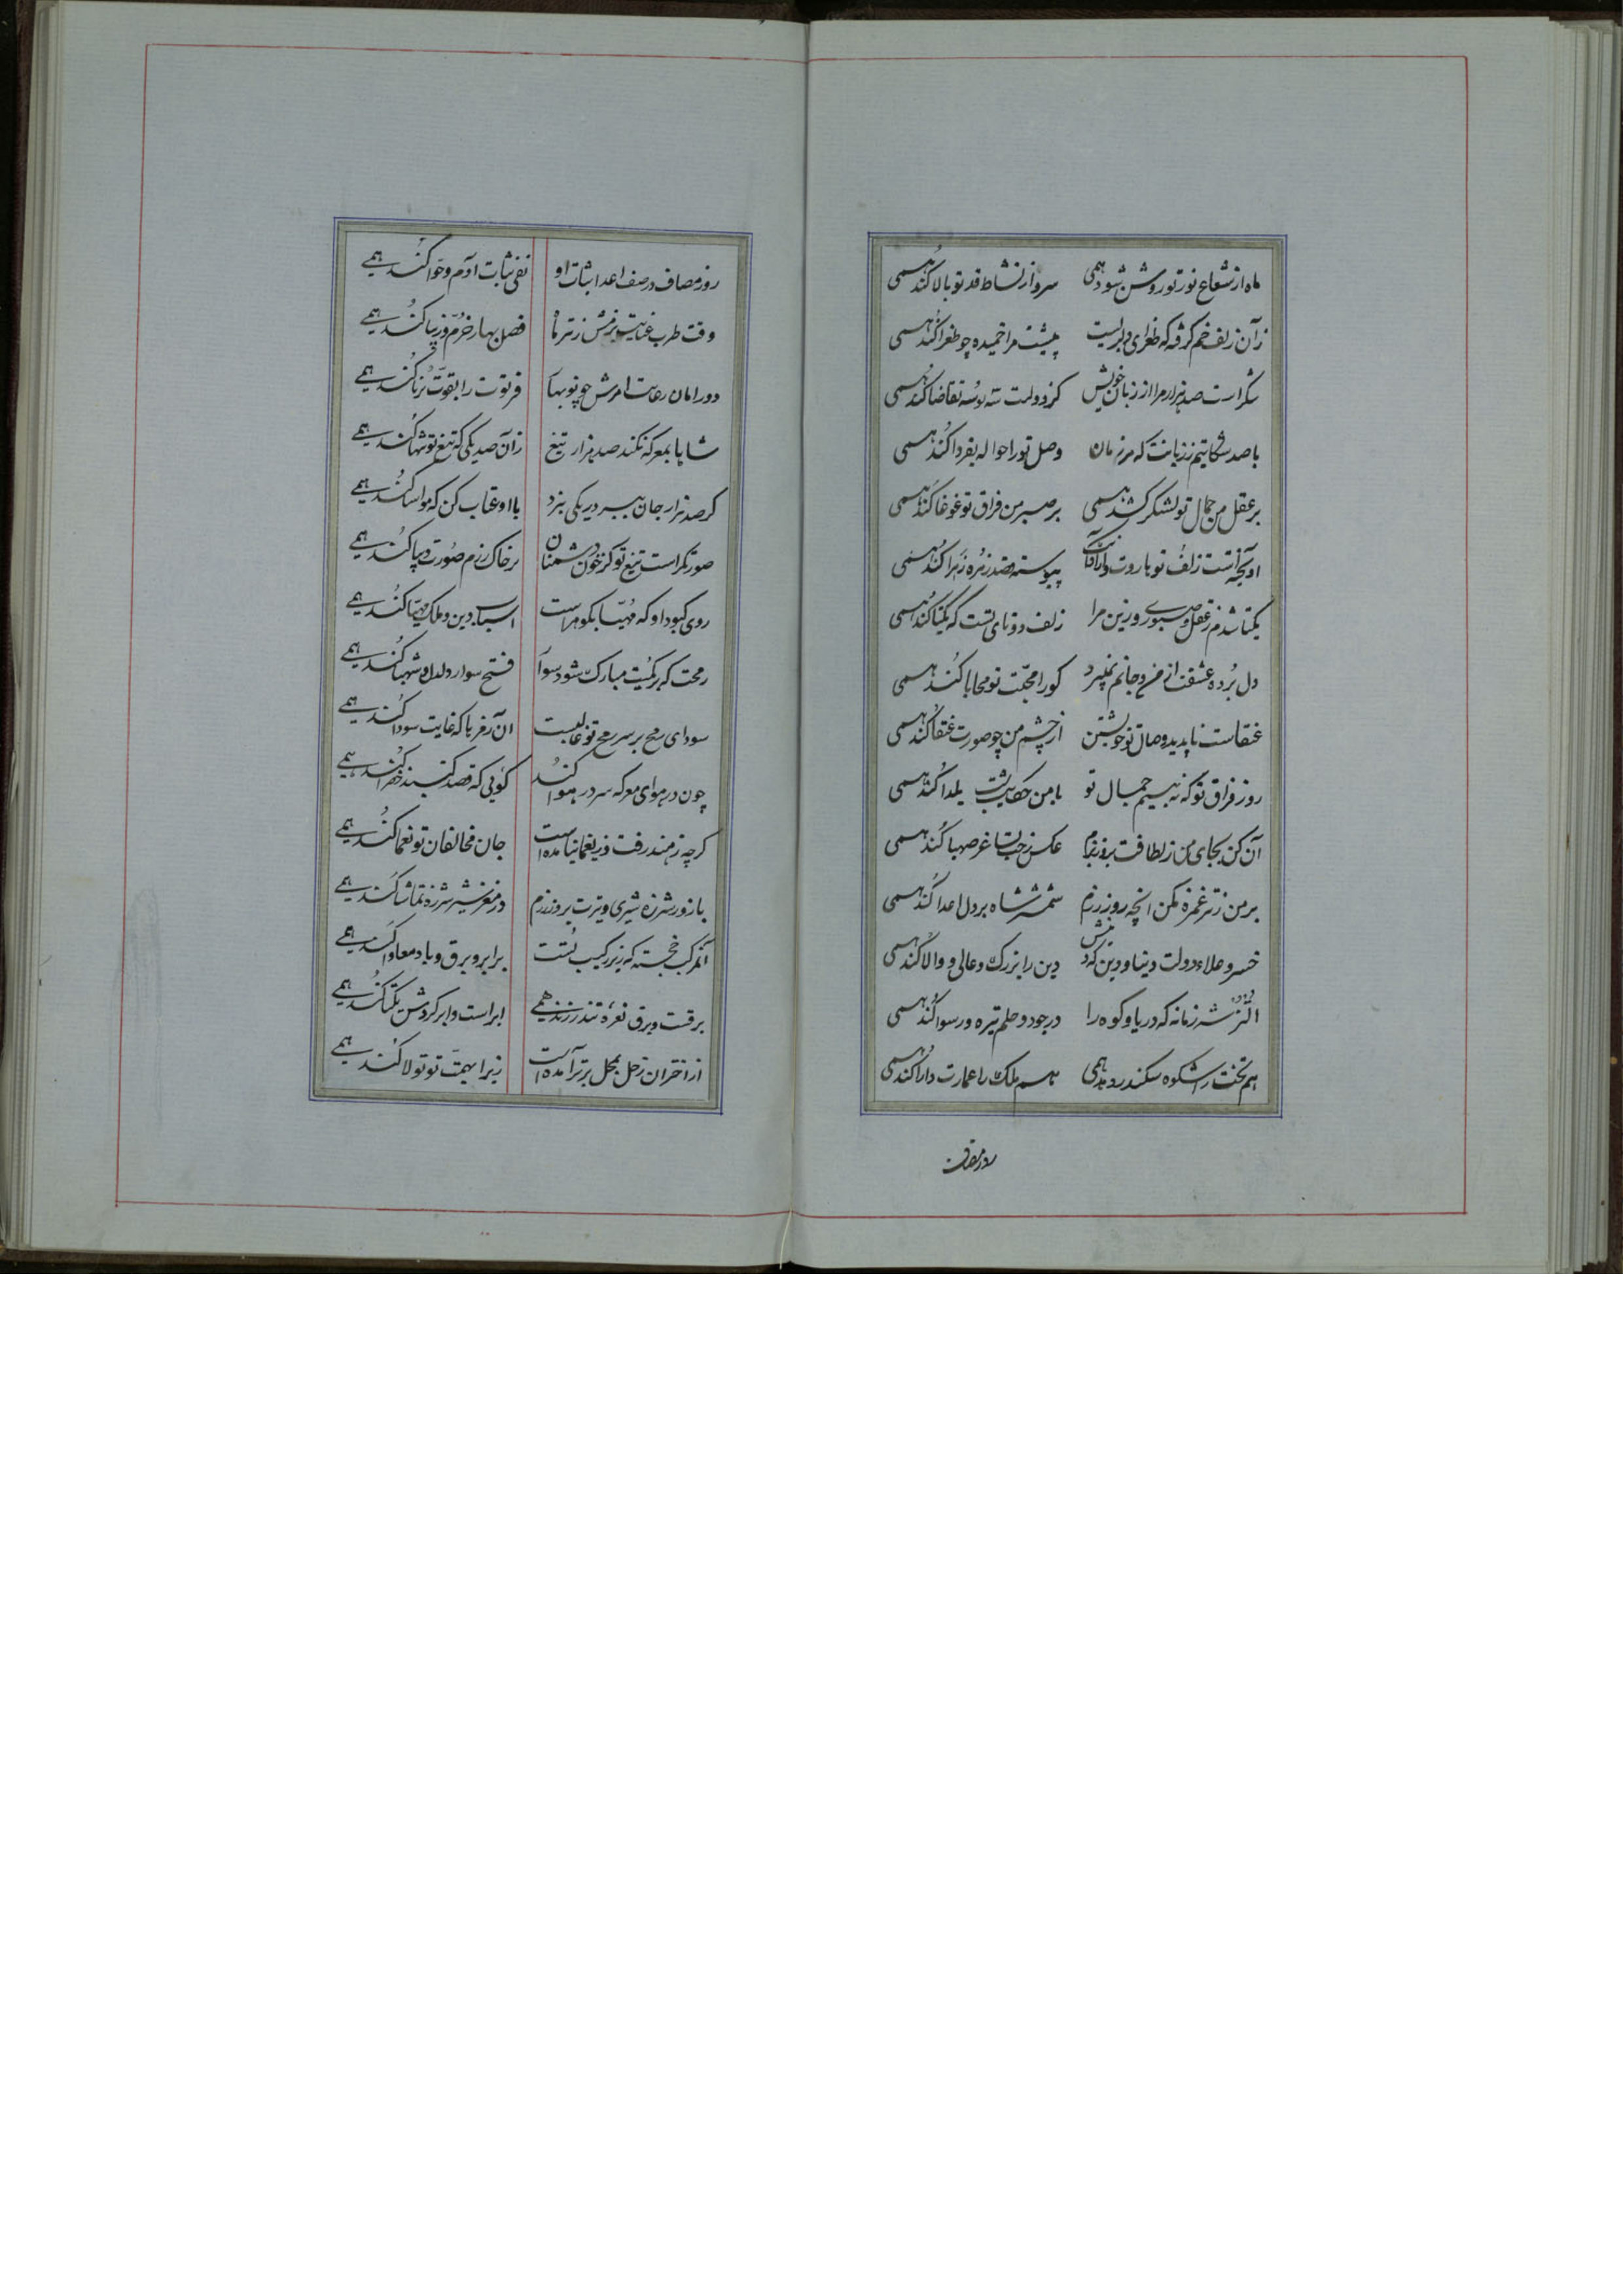 ماه از شعاع نور تو روشن شود همی سرو از نشاط قد تو بالا کند همی
زآن زلف خم گرفته که طغرای دلبریست پشت مرا خمیده چو طغرا کند همی
شکر است صد هزار مرا از زبان خویش کز دولت سه بوسه تقاضا کند همی
با صد شکایتیم ز زبانت که هر زمان وصل تو را حواله بفردا کند همی
بر عقل من جمال تو لشکر کشد همی بر صبر من فراق تو غوغا کند همی
آویخته است زلف تو هاروت را پیوسته قصد زهره زهرا کند همی
یکتا شدم ز عقل و صبوری ورزین مرا زلف دو تای تست که یکتا کند همی
دل برده عشقت از من و جانم نمیبرد کو را محبت تو محابا کند همی
عنقاست ناپدید وصال تو خویشتن از چشم من چو صورت عنقا کند همی
روز فراق تو که نه بینم جمال تو با من حکایت شب یلدا کند همی
آن کن بجای من ز لطافت بروز بزم عکس رخت بساغر صهبا کند همی
بر من ز تیر غمزه مکن آنچه روز رزم شمشیر شاه بر دل اعدا کند همی
خسرو علاء دولت دنیا و دین که دین را بزرگ و عالی و والا کند همی
اتسز شه زمانه که دریا و کوه را در جود و حلم تیره و رسوا کند همی
هم تخت را شکوه سکندر دهد همی هم ملک را عمارت دارا کند همی
روز مصاف
روز مصاف در صف اعدا ثبات او نفی ثبات آدم و حوا کند همی
وقت طرب عنایت بزمش ز تیر ماه فصل بهار خرم و زیبا کند همی
دور امان رعایت امرش چو نوبهار فرتوت را بقوت برنا کند همی
شاها بمعرکه نکند صد هزار تیغ زآن صد یکی که تیغ تو تنها کند همی
گر صد هزار جان ببرد در یکی نبرد با او عتاب کن که مواسا کند همی
صورتگر است تیغ تو کز خون دشمنان بر خاک رزم صورت دیبا کند همی
روی کبود او که مهیا بگوهر است اسباب دین و ملک مهیا کند همی
رمحت که بر کمیت مبارک شود سوار فتح سوار دلدل و شهبا کند همی
سودای رمح بر سر رمح تو غالبست آن زعفر با که غایت سودا کند همی
چون در هوای معرکه سر در هوا کند گویی که قصد گنبد خضرا کند همی
گرچه ز هند رفت ز یغما نیامده است جان مخالفان تو یغما کند همی
با زور شرزه شیری و تیرت بروز رزم در مغز شیر شرزه تماشا کند همی
آن مرکب خجسته که زیر رکیب تست برابر و برق و باد معادا کند همی
برقست و برق نعره تندر زند همی ابر است و ابر گردش نکبا کند همی
از اختران زحل بمحل برتر آمده است زیرا بهمت تو تولا کند همی